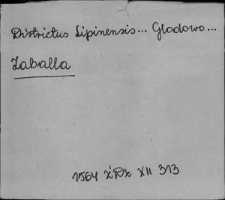 Districtus Lipinensis... Glodowo...
Zaballa
1564 ŹDz XII 313